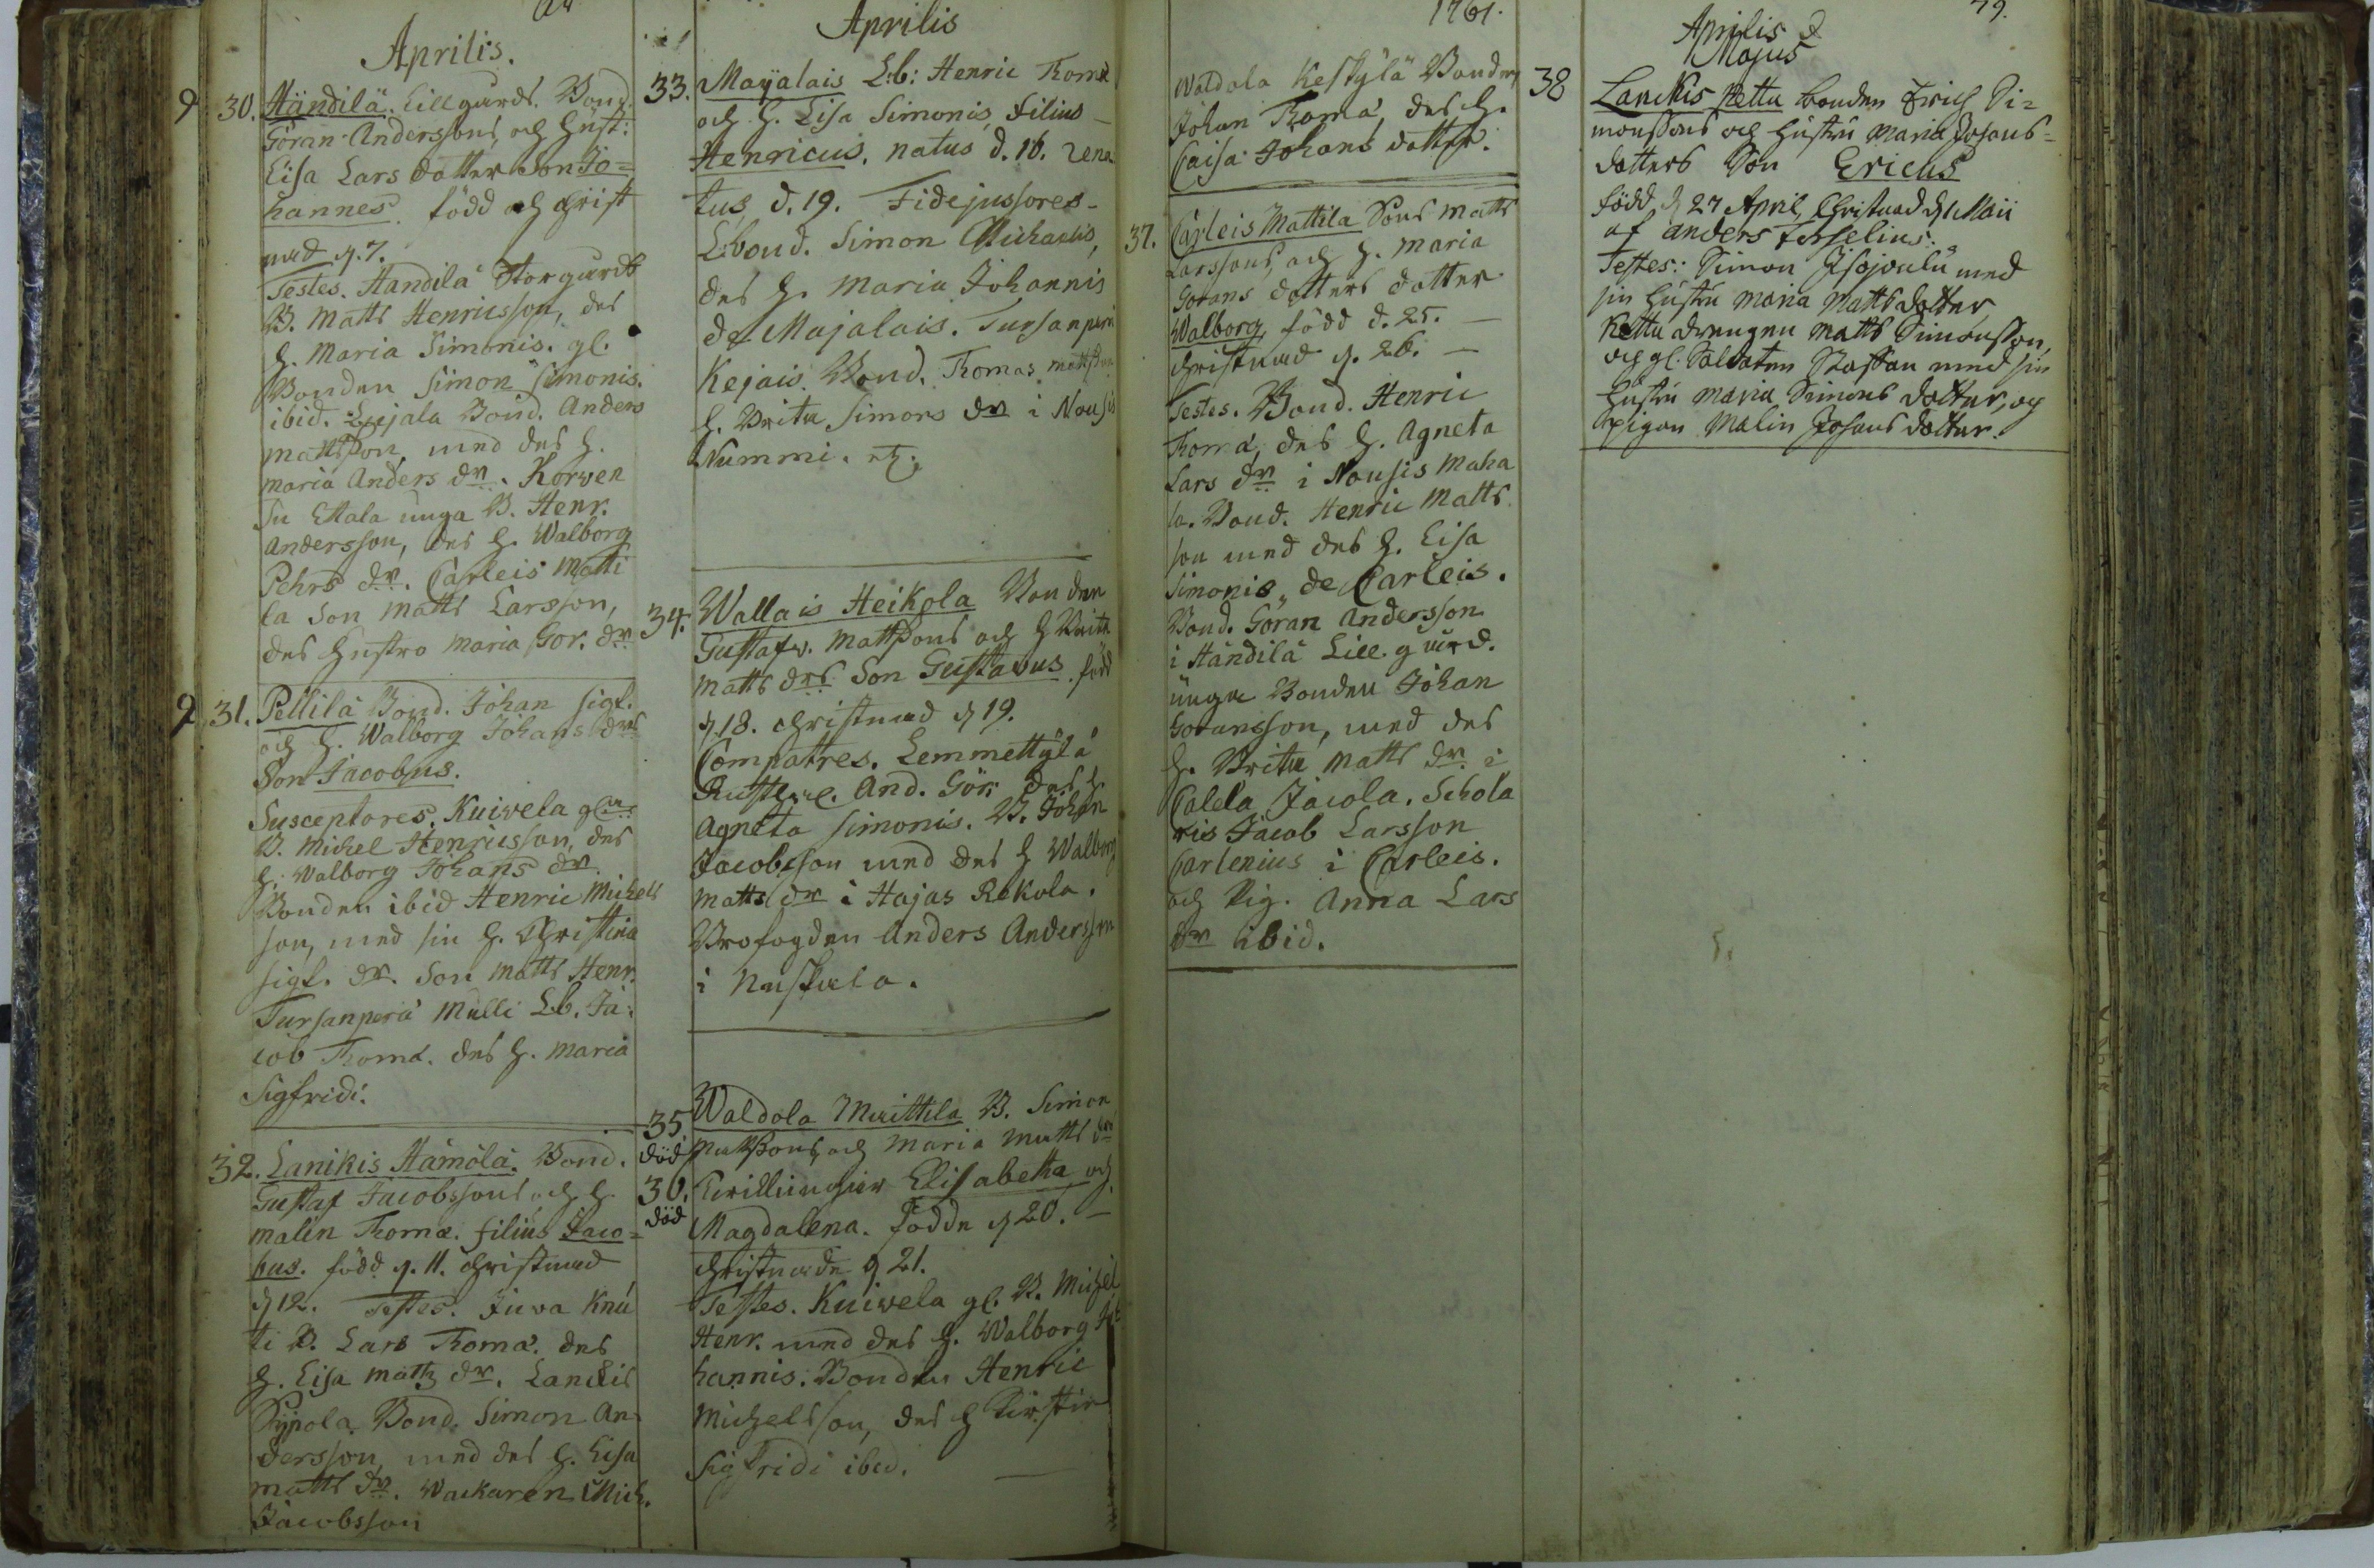 Aprilis.
30. Händilä Lillgårds Bond.
Göran Anderssons, och Hust:
Lisa Lars dotter Son Jo=
hannes. född och Christ
nad d. 7.
Testes. Handila Storgårds
B. Matts Henricsson, des
H. Maria Simonis. gl.
Bonden Simon Simonis.
ibid. Bond. Anders
Mattsson, med des H.
Maria Anders dr. Korven
Su Ettala unga B. Henr.
Andersson, des H. Walborg
Pehrs dr. Carleis Matti
la Son Matts Larsson,
des Hustro Maria Gör. dr
31. Pellilä Bond. Johan Sigf.
och H. Walborg Johans drs
Son Jacobus.
Susceptores. Kuivela gl.
B. Michel Henricsson, des
H. Walborg Johans dr.
Bonden ibid Henric Michels
son, med sin H. Christina
Sigf. dr. Son Matts Henr.
Tursanperä Mulli Lb. Ja:
cob Thomæ. des H. Maria
Sigfridi.
32. Lanikis Hämölä. Bond.
Gustaf Jacobssons, och H.
Malin Thomæ. filius Jaco=
bus. född d. 11. Christnad
d 12. Testes. Juva Knu
ti B. Lars Thomæ. des
H. Lisa Matts dr. Lanikis
Bond. Simon An
dersson, med des H. Lisa
Matts dr. Mich.
Jacobsson
Aprilis
33. Mayalais L:b: Henric Thomæ
och H. Lisa Simonis, Filius
Henricus, natus d. 16. rena
tus, d. 19. Fidejussores.
L:bond. Simon Michaelis,
des H. Maria Johannis
de Majalais. Tursanperä
Kejais. Bond. Thomas Mattsson
H. Brita Simons dr i Nousis
Nummi. etc.
34. Wallais Heikola Bonden
Gustafs. Mattssons och H Brita
Matts drs Son Gustavus. född
d 18. Christnad d 19.
Compatres. Lemmettylä
And. Gör. des H.
Agneta Simonis. B. Johan
Jacobsson med des H Walborg
Matts dr i Hajas Rekola.
Brofogden Anders Andersson
i Nuskala.
35 Waldola Maittila B. Simon
död Mattssons, och Maria Matts drs
36. Twillingar Elisabetha och
död Magdalena. Födde d 20.
Christnade d 21.
Testes. Kuivela gl. B. Michel
Henr. med des H. Walborg Jo
hannis. Bonden Henric
Michelsson, des H Kirstin
Sigfridi ibid.
1761.
Waldola Keskylä Bonden
Johan Thomæ, des H.
Caisa Johans dotter.
37. Carleis Mattila Sons Matts
Larssons, och H. Maria
Görans dotters dotter
Walborg, född d. 25.
Christnad d. 26.
Testes. Bond. Henric
Thomæ, des H. Agneta
Lars dr i Nousis Maha
la. Bond. Henric Matts
son med des H. Lisa
Simonis, de Carleis.
Bond. Göran Andersson
i Händilä Lill. gård.
unga Bonden Johan
Göransson, med des
H. Brita Matts dr. i
Calela Jacola. Schola
ris Jacob Larsson
Carlenius i Carleis.
och Pig. Anna Lars
dr ibid.
79.
Aprilis &
Majus
38 Lanikis Kettu bonden Erich Si=
monssons och Hustru Maria Johans=
dotters Son Ericus
född d 27 April, Christnad d 1 Maii
af Anders Forselius.
Testes: Simon Isojoulu med
sin Hustru Maria Matts dotter,
Kettu drengen Matts Simonsson,
och gl. Soldaten Staffan med sin
Hustru Maria Simons dotter, och
pigan Malin Johans dotter.